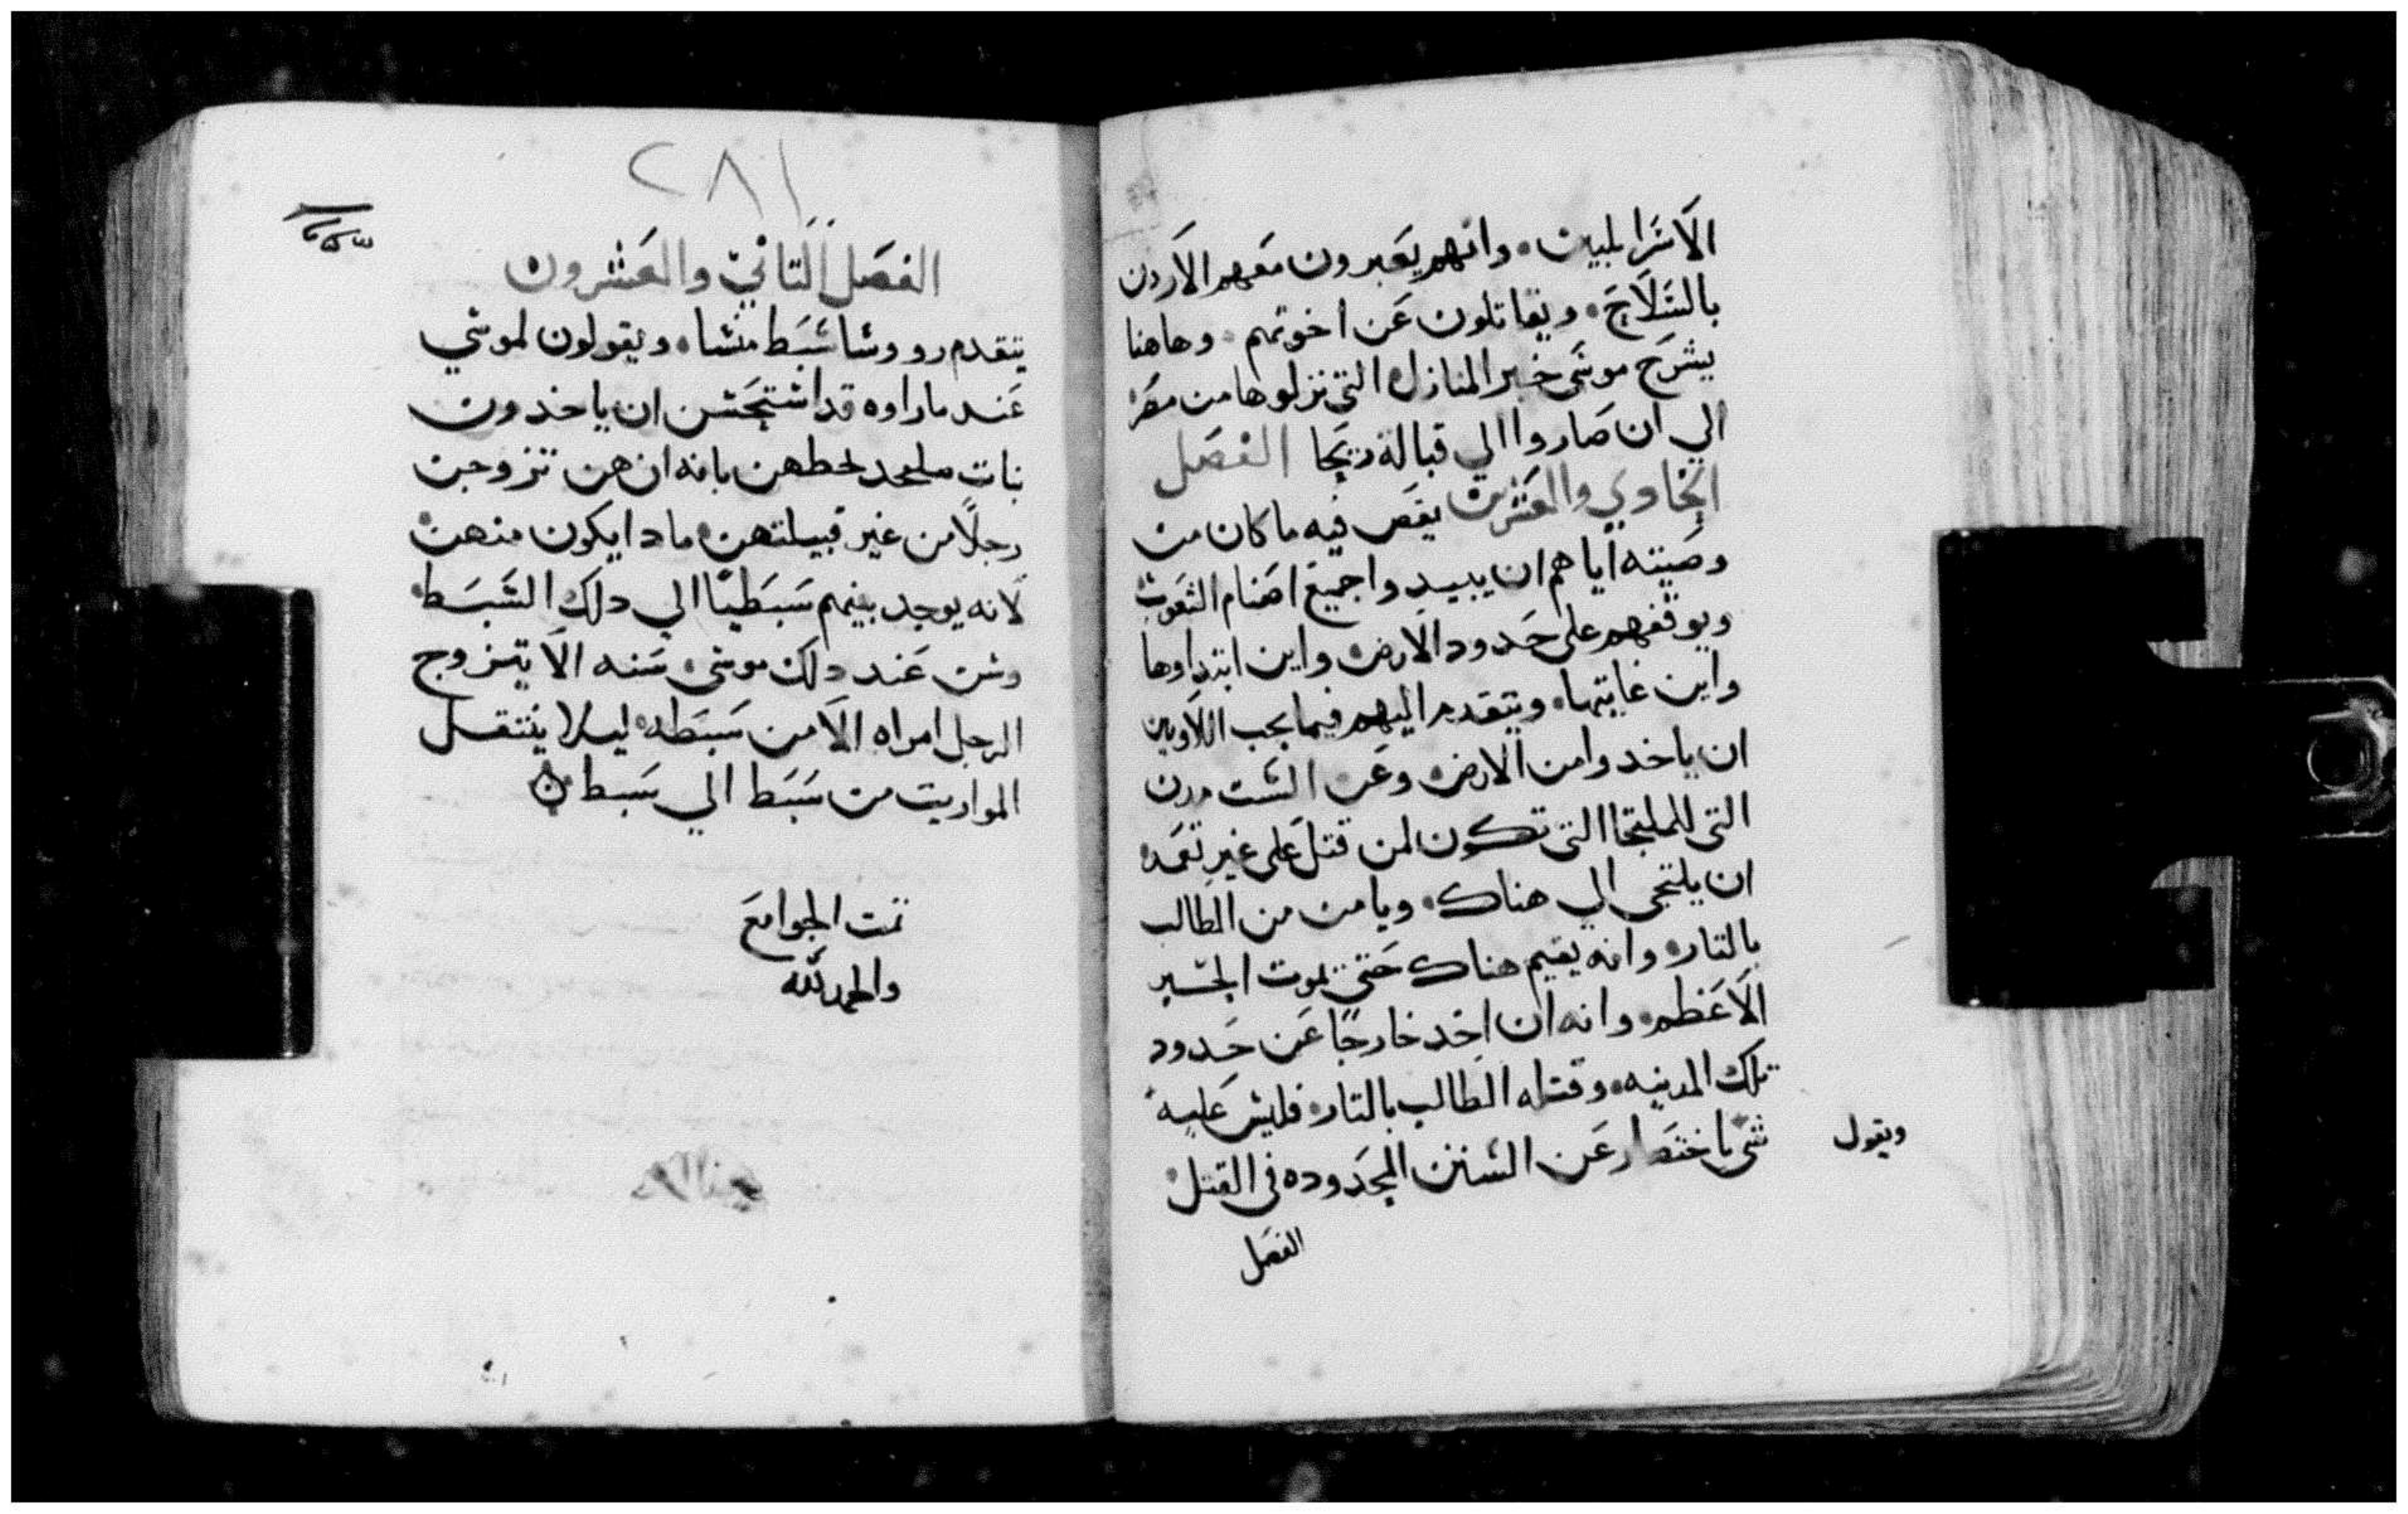 الاسرايليين. وانهم يعبرون معهم الاردن
بالسلاح. ويقاتلون عن اخوتهم. وهاهنا
يشرح موسى خبر المنازل التى نزلوها من مصر
الي ان صاروا الي قبالة ريحا الفصل
الحادي والعشرين يقص فيه ما كان من
وصيته اياهم ان يبيدوا جميع اصنام الشعوب
ويوقفهم على حدود الارض واين ابتداوها
واين غايتها. ويتقدم اليهم فيما يجب اللاويين
ان ياخدوا من الارض وعن الست مدن
التى للملتجا التى تكون لمن قتل على غير تعمد
ان يلتجى الي هناك. ويامن من الطالب
بالتار. وانه يقيم هناك حتى يموت الحبر
الاعظم. وانه ان اخد خارجًا عن حدود
تلك المدينه. وقتله الطالب بالتار. فليس عليه
شى باختصار عن السنن المحدوده فى القتل
ويقول
الفصل
٢٨١
الفصل التاني والعشرون
يتقدم رووسا سبط منشا. ويقولون لموسي
عند ما راوه قد استحسن ان ياخدون
بنات لحطهن بانه ان هن تزوجن
رجلًا من غير قبيلتهن مادا يكون منهن
لانه يوجد بينهم سبطيًا الي دلك السبط.
وسن عند دلك موسى. سنه الا يتزوج
الرجل امراه الا من سبطه ليلا ينتقل
المواريت من سبط الي سبط
تمت الجوامع
والحمد لله